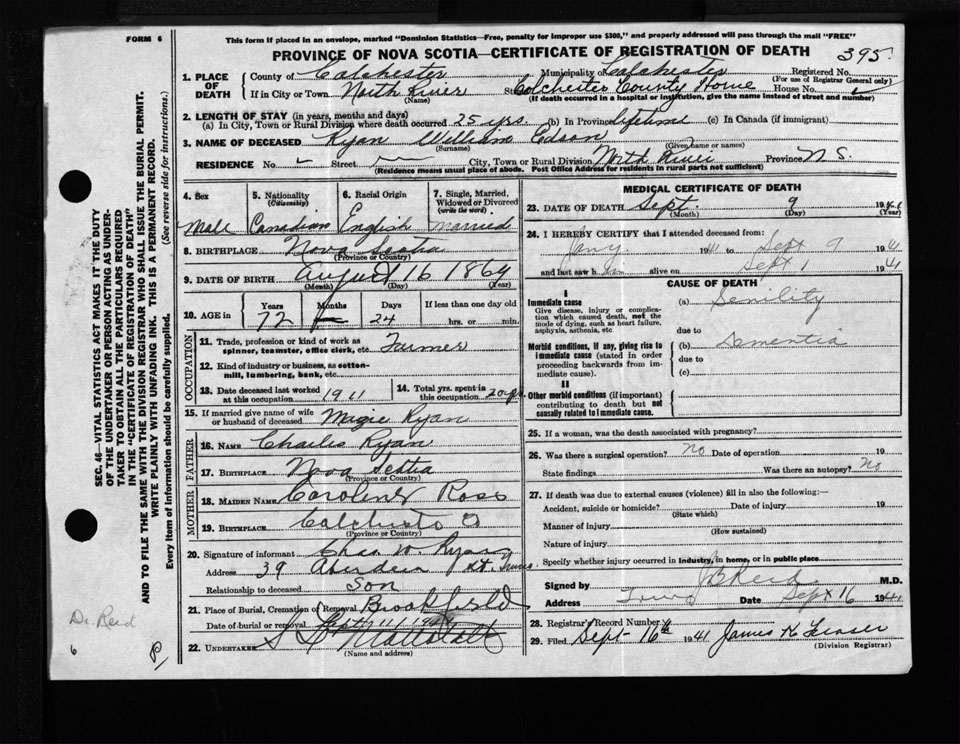 FORM 6
This form if placed in an envelope, marked "Dominion Statistics—Free, penalty for improper use $300," and properly addressed will pass through the mail "FREE"
PROVINCE OF NOVA SCOTIA—CERTIFICATE OF REGISTRATION OF DEATH 395
1. PLACE OF DEATH
County of Colchester Municipality of Colchester Registered No. (For use of Registrar General only)
If in City or Town North River (Name) Colchester County Home House No.
(If death occurred in a hospital or institution, give the name instead of street and number)
2. LENGTH OF STAY (in years, months and days)
(a) In City, Town or Rural Division where death occurred 25 yrs. (b) In Province lifetime (c) In Canada (if immigrant)
3. NAME OF DECEASED Ryan William Edson
(Surname) (Given name or names)
RESIDENCE No. – Street City, Town or Rural Division North River Province N S.
(Residence means usual place of abode. Post Office Address for residents in rural parts not sufficient)
4. Sex Male
5. Nationality (Citizenship) Canadian
6. Racial Origin English
7. Single, Married, Widowed or Divorced (write the word) Married
8. BIRTHPLACE Nova Scotia
(Province or Country)
9. DATE OF BIRTH August 16 1869
(Month) (Day) (Year)
10. AGE in Years 72 Months Days 24 If less than one day old hrs. or min.
OCCUPATION
11. Trade, profession or kind of work as spinner, teamster, office clerk, etc. Farmer
12. Kind of industry or business, as cotton-mill, lumbering, bank, etc.
13. Date deceased last worked at this occupation 1911
14. Total yrs. spent in this occupation 20 yrs
15. If married give name of wife or husband of deceased Ryan
FATHER
16. NAME Charles Ryan
17. BIRTHPLACE Nova Scotia
(Province or Country)
MOTHER
18. MAIDEN NAME Ross
19. BIRTHPLACE
(Province or Country)
20. Signature of informant Chas. W. Ryan
Address 39 Aberdeen St. Truro
Relationship to deceased Son
21. Place of Burial, Cremation or Removal Brookfield
Date of burial or removal Sept 11/1941
22. UNDERTAKER
(Name and address)
MEDICAL CERTIFICATE OF DEATH
23. DATE OF DEATH Sept. 9 19
(Month) (Day) (Year)
24. I HEREBY CERTIFY that I attended deceased from:
Jany. 1941 to Sept 9 1941
and last saw h im alive on Sept 1 1941
CAUSE OF DEATH
I
Immediate cause
Give disease, injury or complication which caused death, not the mode of dying, such as heart failure, asphyxia, asthenia, etc.
(a) Senility
due to
Morbid conditions, if any, giving rise to immediate cause (stated in order proceeding backwards from immediate cause).
(b) Dementia
due to
(c)
II
Other morbid conditions (if important) contributing to death but not causally related to immediate cause.
25. If a woman, was the death associated with pregnancy?
26. Was there a surgical operation? no Date of operation 19
State findings Was there an autopsy? no
27. If death was due to external causes (violence) fill in also the following:—
Accident, suicide or homicide? Date of injury 19
(State which)
Manner of injury
(How sustained)
Nature of injury
Specify whether injury occurred in industry, in home, or in public place
Signed by Reid M.D.
Address Truro Date Sept 16 1941
28. Registrar's Record Number
29. Filed Sept - 16th 1941 James K Fraser
(Division Registrar)
SEC. 46—VITAL STATISTICS ACT MAKES IT THE DUTY
OF THE UNDERTAKER OR PERSON ACTING AS UNDER-
TAKER TO OBTAIN ALL THE PARTICULARS REQUIRED
IN THE "CERTIFICATE OF REGISTRATION OF DEATH"
AND TO FILE THE SAME WITH THE DIVISION REGISTRAR WHO SHALL ISSUE THE BURIAL PERMIT.
WRITE PLAINLY WITH UNFADING INK. THIS IS A PERMANENT RECORD.
Every item of information should be carefully supplied. (See reverse side for instructions.)
Dr. Reid
6